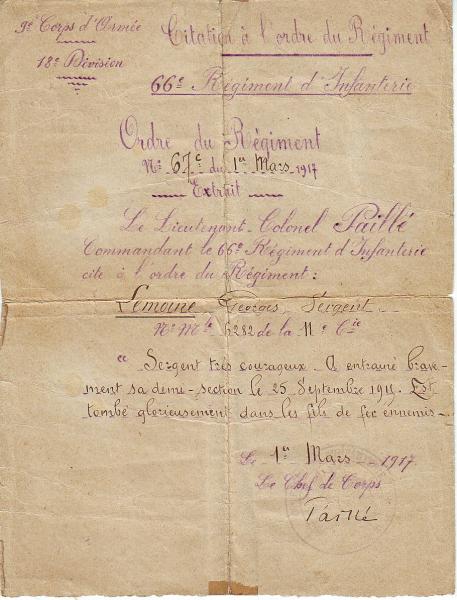 9e Corps d'Armée
18e Division
Citation à l'ordre du Régiment
66e Régiment d'Infanterie
Ordre du Régiment
No 67e du 1er Mars 1917
Extrait
Le Lieutenant-Colonel Paillé
Commandant le 66e Régiment d'Infanterie
cite à l'ordre du Régiment :
Lemoine Georges, Sergent
No Mle 6282 de la 11e Cie
" Sergent très courageux. A entrainé brave-
ment sa demi-section le 25 Septembre 1915. Est
tombé glorieusement dans les fils de fer ennemis -
Le 1er Mars 1917
Le Chef de Corps
Paillé